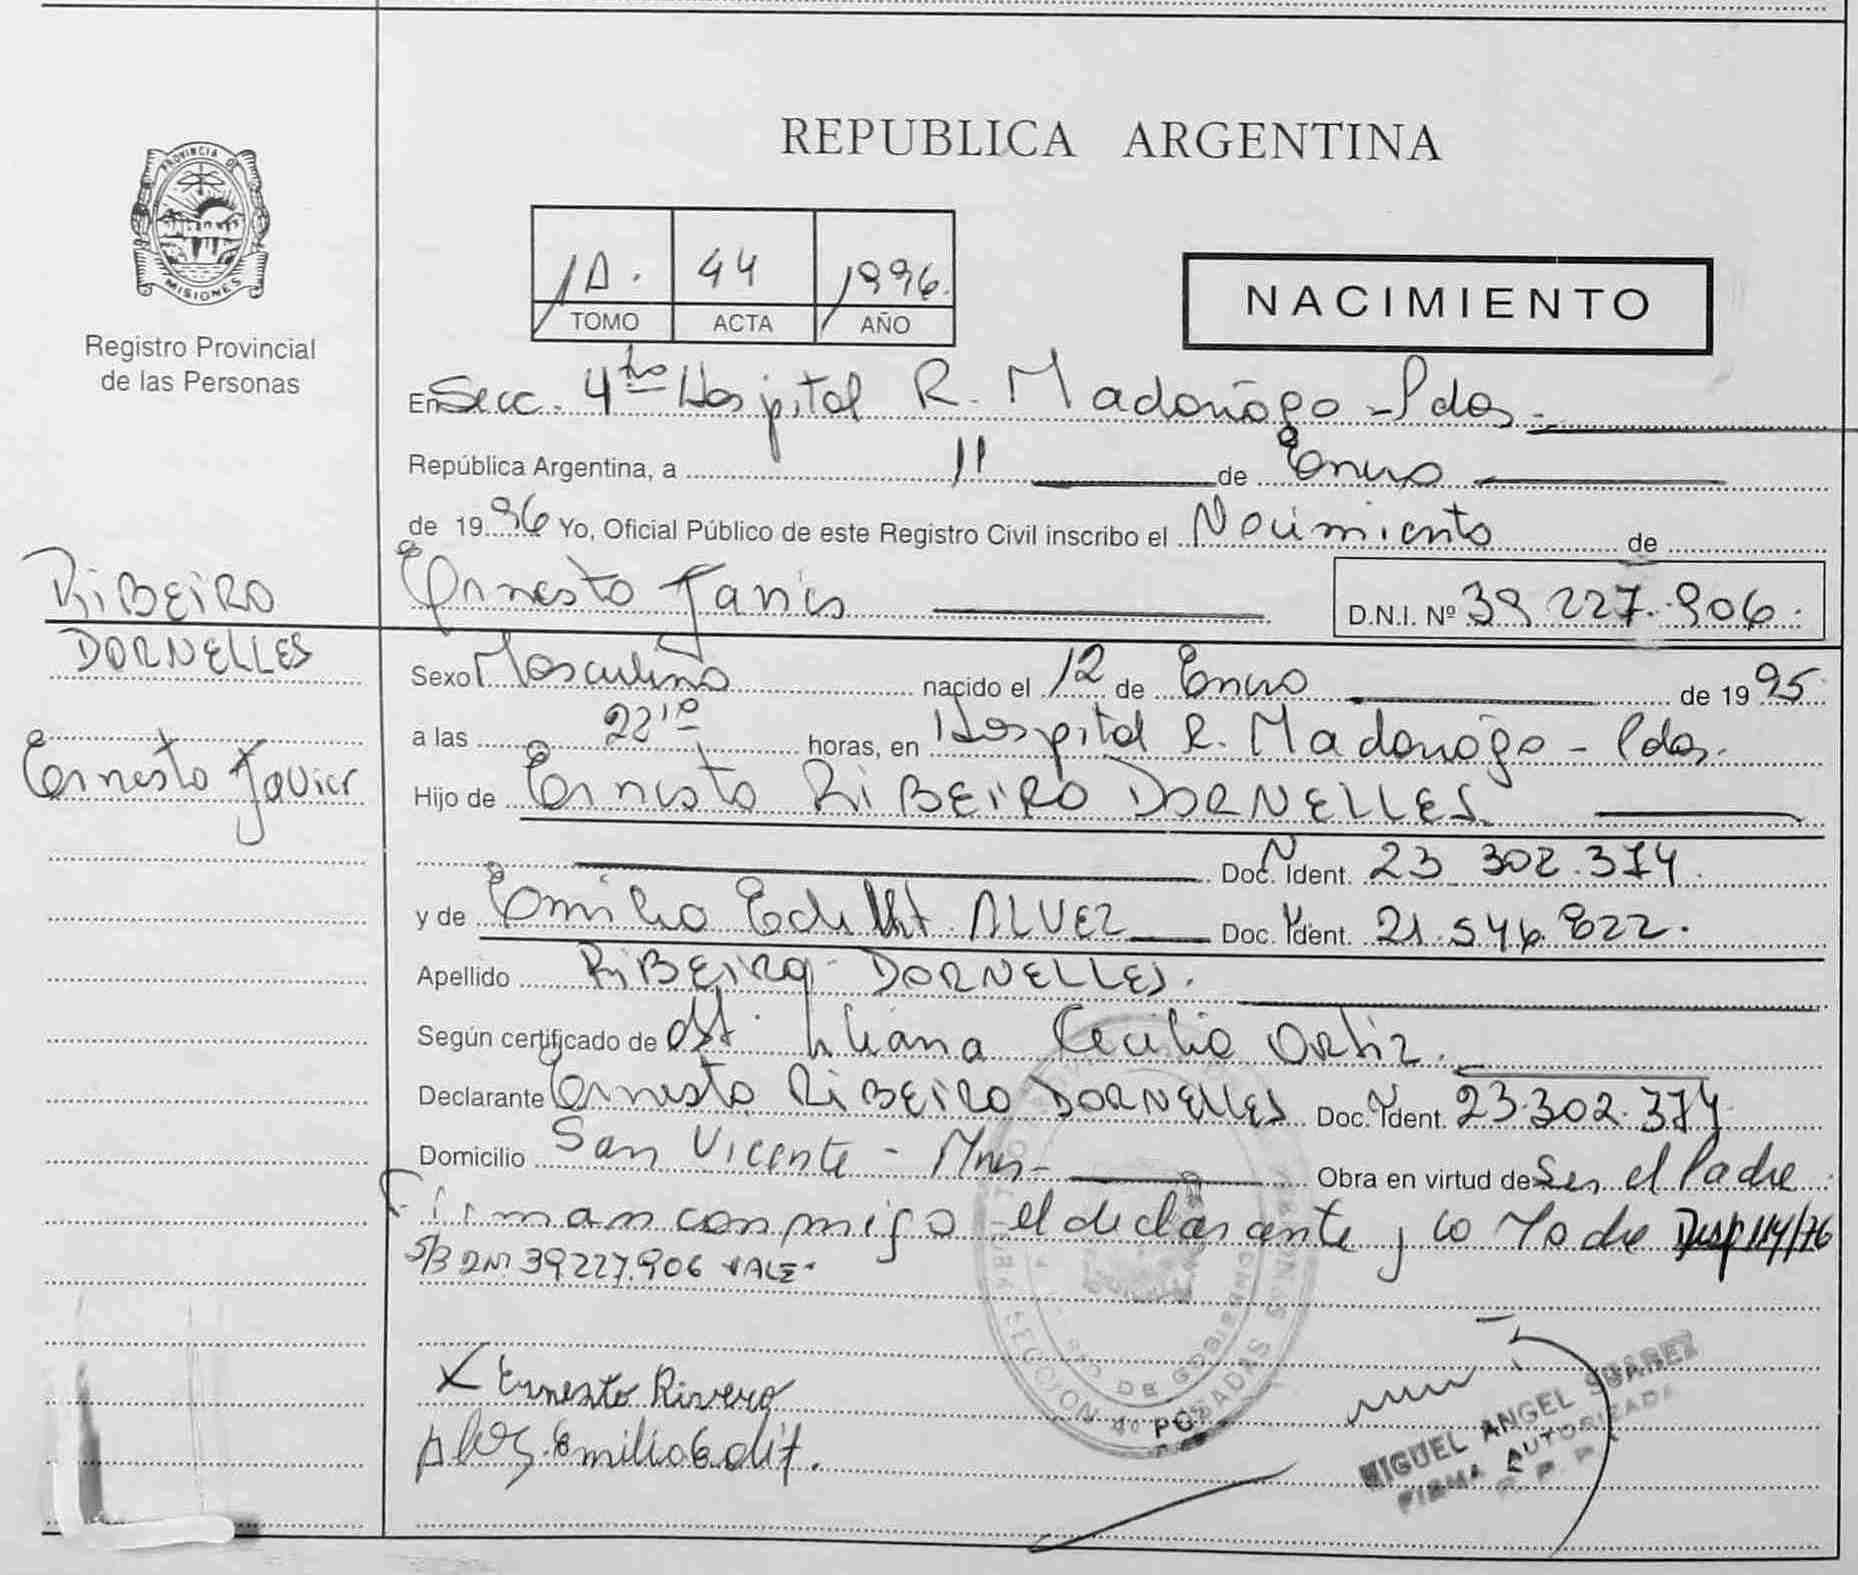 REPUBLICA ARGENTINA
PROVINCIA DE
MISIONES
Registro Provincial
de las Personas
44 1996.
TOMO ACTA AÑO
NACIMIENTO
En Secc. 4ta Hospital R. Madariaga - Pdas.
República Argentina, a 11 de Enero
de 1996 Yo, Oficial Público de este Registro Civil inscribo el Nacimiento de
Ernesto Javier D.N.I. Nº 39 227.906.
RIBEIRO
DORNELLES
Ernesto Javier
Sexo Masculino nacido el 12 de Enero de 1995
a las 22 10 horas, en Hospital R. Madariaga - Pdas.
Hijo de Ernesto RIBEIRO DORNELLES
Doc. Ident. 23 302.374.
y de Emilia ALVEZ Doc. Ident. 21.546.822.
Apellido RIBEIRO DORNELLES.
Según certificado de Obst. Liliana Cecilia Ortiz.
Declarante Ernesto RIBEIRO DORNELLES Doc. Ident. 23.302.374
Domicilio San Vicente - Mnes- Obra en virtud de Ser el Padre
Firman conmigo el declarante y la Madre Desp 114/76
S/B DNI 39227.906 VALE
X Ernesto Rivero
Emilia Edit.
SECCION 4º POSADAS
MIGUEL ANGEL SUAREZ
FIRMA AUTORIZADA
R. P. P.